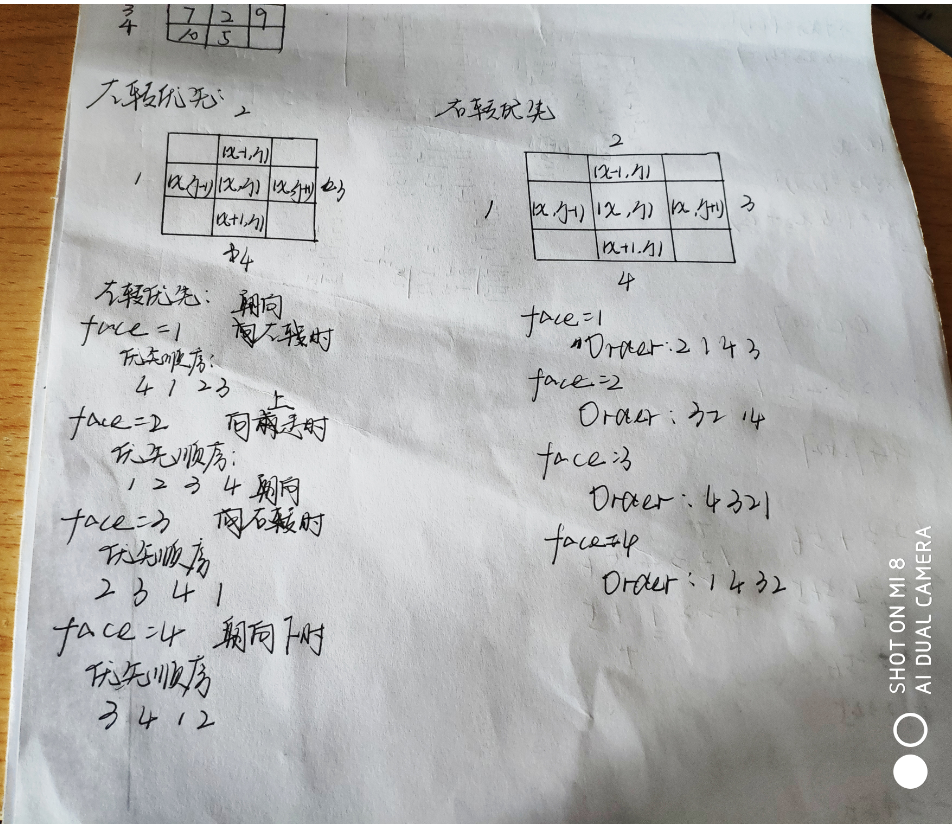 3 7 2 9
4 10 5
左转优先:
2
(x-1,y)
1 (x,y-1) (x,y) (x,y+1) 3
(x+1,y)
4
左转优先: 朝向
face=1 向左转时
优先顺序:
4 1 2 3
上
face=2 向前走时
优先顺序:
1 2 3 4 朝向
face=3 向右转时
优先顺序
2 3 4 1
face=4 朝向下时
优先顺序
3 4 1 2
右转优先
2
(x-1,y)
1 (x,y-1) (x,y) (x,y+1) 3
(x+1,y)
4
face=1
Order:2 1 4 3
face=2
Order: 3 2 1 4
face=3
Order: 4 3 2 1
face=4
Order: 1 4 3 2
SHOT ON MI 8
AI DUAL CAMERA